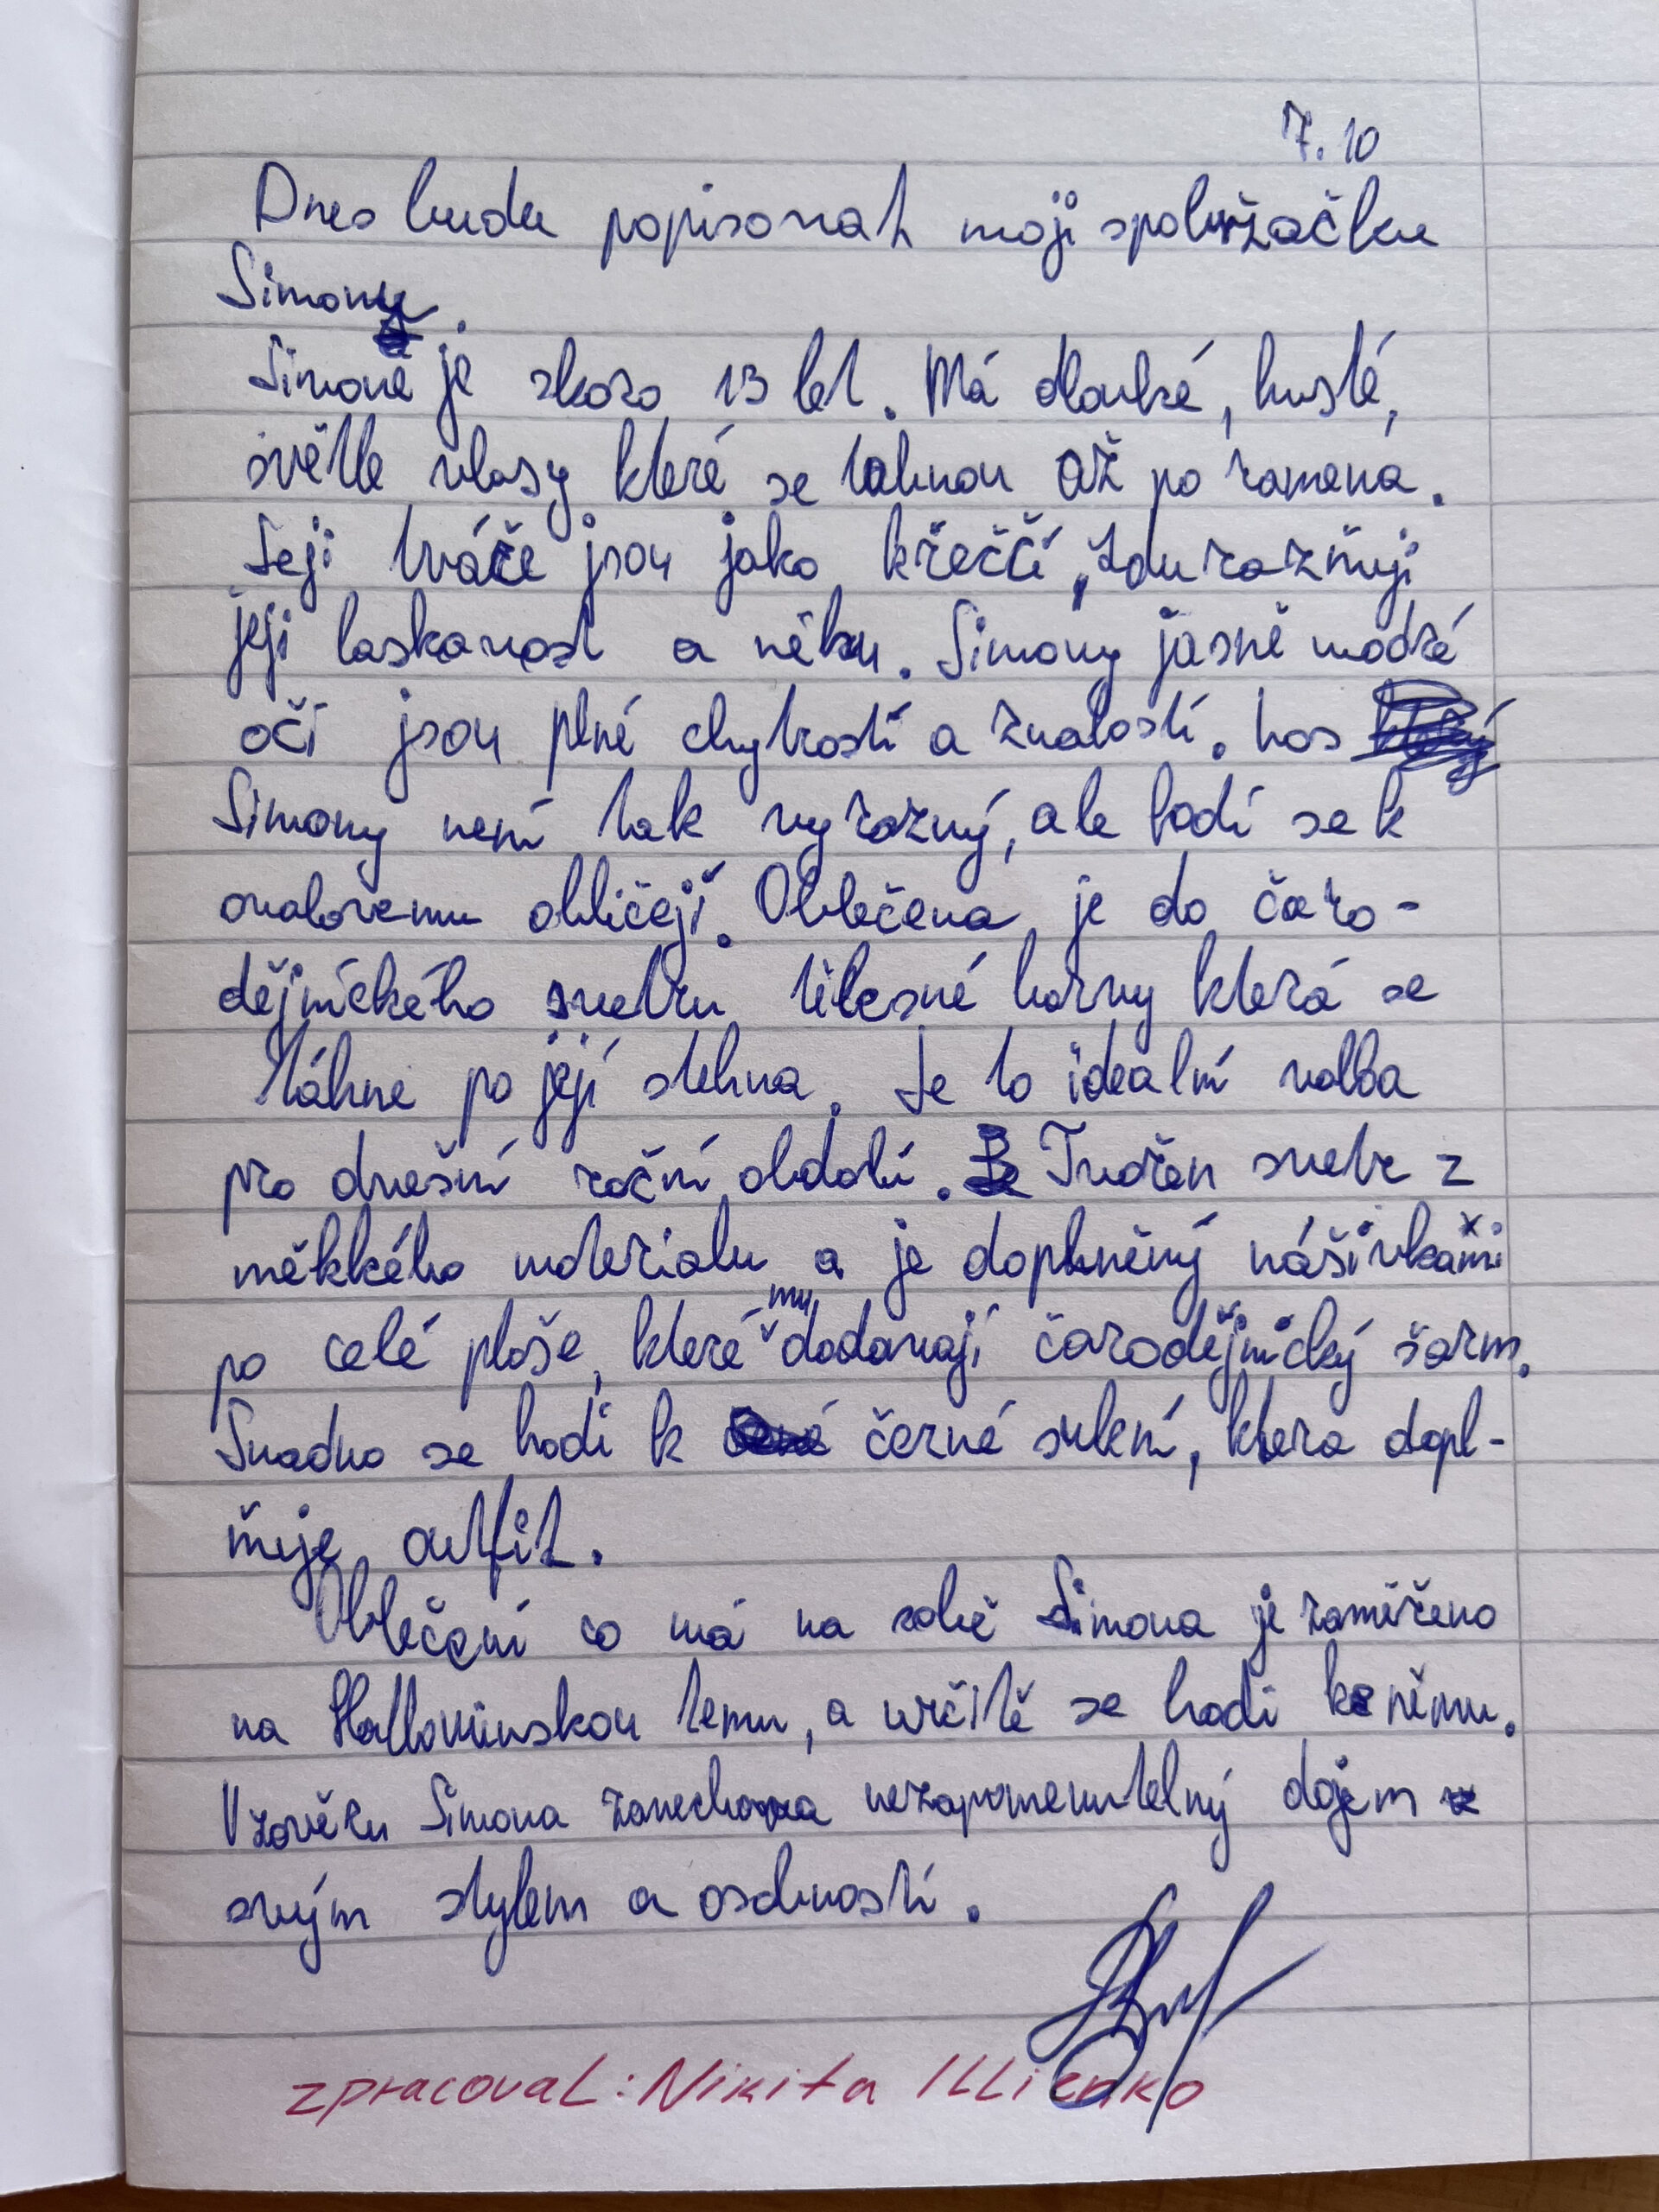 7. 10
Dnes budu popisovat moji spolužačku
Simonu.
Simoně je skoro 13 let. Má dlouhé, husté,
světle vlasy které se tahnou až po ramena.
Jeji tváře jsou jako křeččí, zdurazňuji
jeji laskavost a něhu. Simony jasně modré
oči jsou plné chytrosti a znalosti. Nos
Simony není tak vyrazný, ale hodí se k
ovalovemu obličeji. Oblečena je do čaro-
dějnického svetru tělesné barvy která se
táhne po její stehna. Je to idealní volba
pro dnešní roční období. Tvořen svetr z
měkkého materialu a je doplněný nášivkami
po celé ploše, které mu dodavají čarodějnický šarm.
Snadno se hodí k černé sukni, ktera dopl-
ňuje outfit.
Oblečení co má na sobě Simona je zaměřeno
na Hallowinskou temu, a určitě se hodi k němu.
V zověru Simona zanechava nezapomenutelný dojem
svým stylem a osobností.
zpracoval: Nikita Illienko